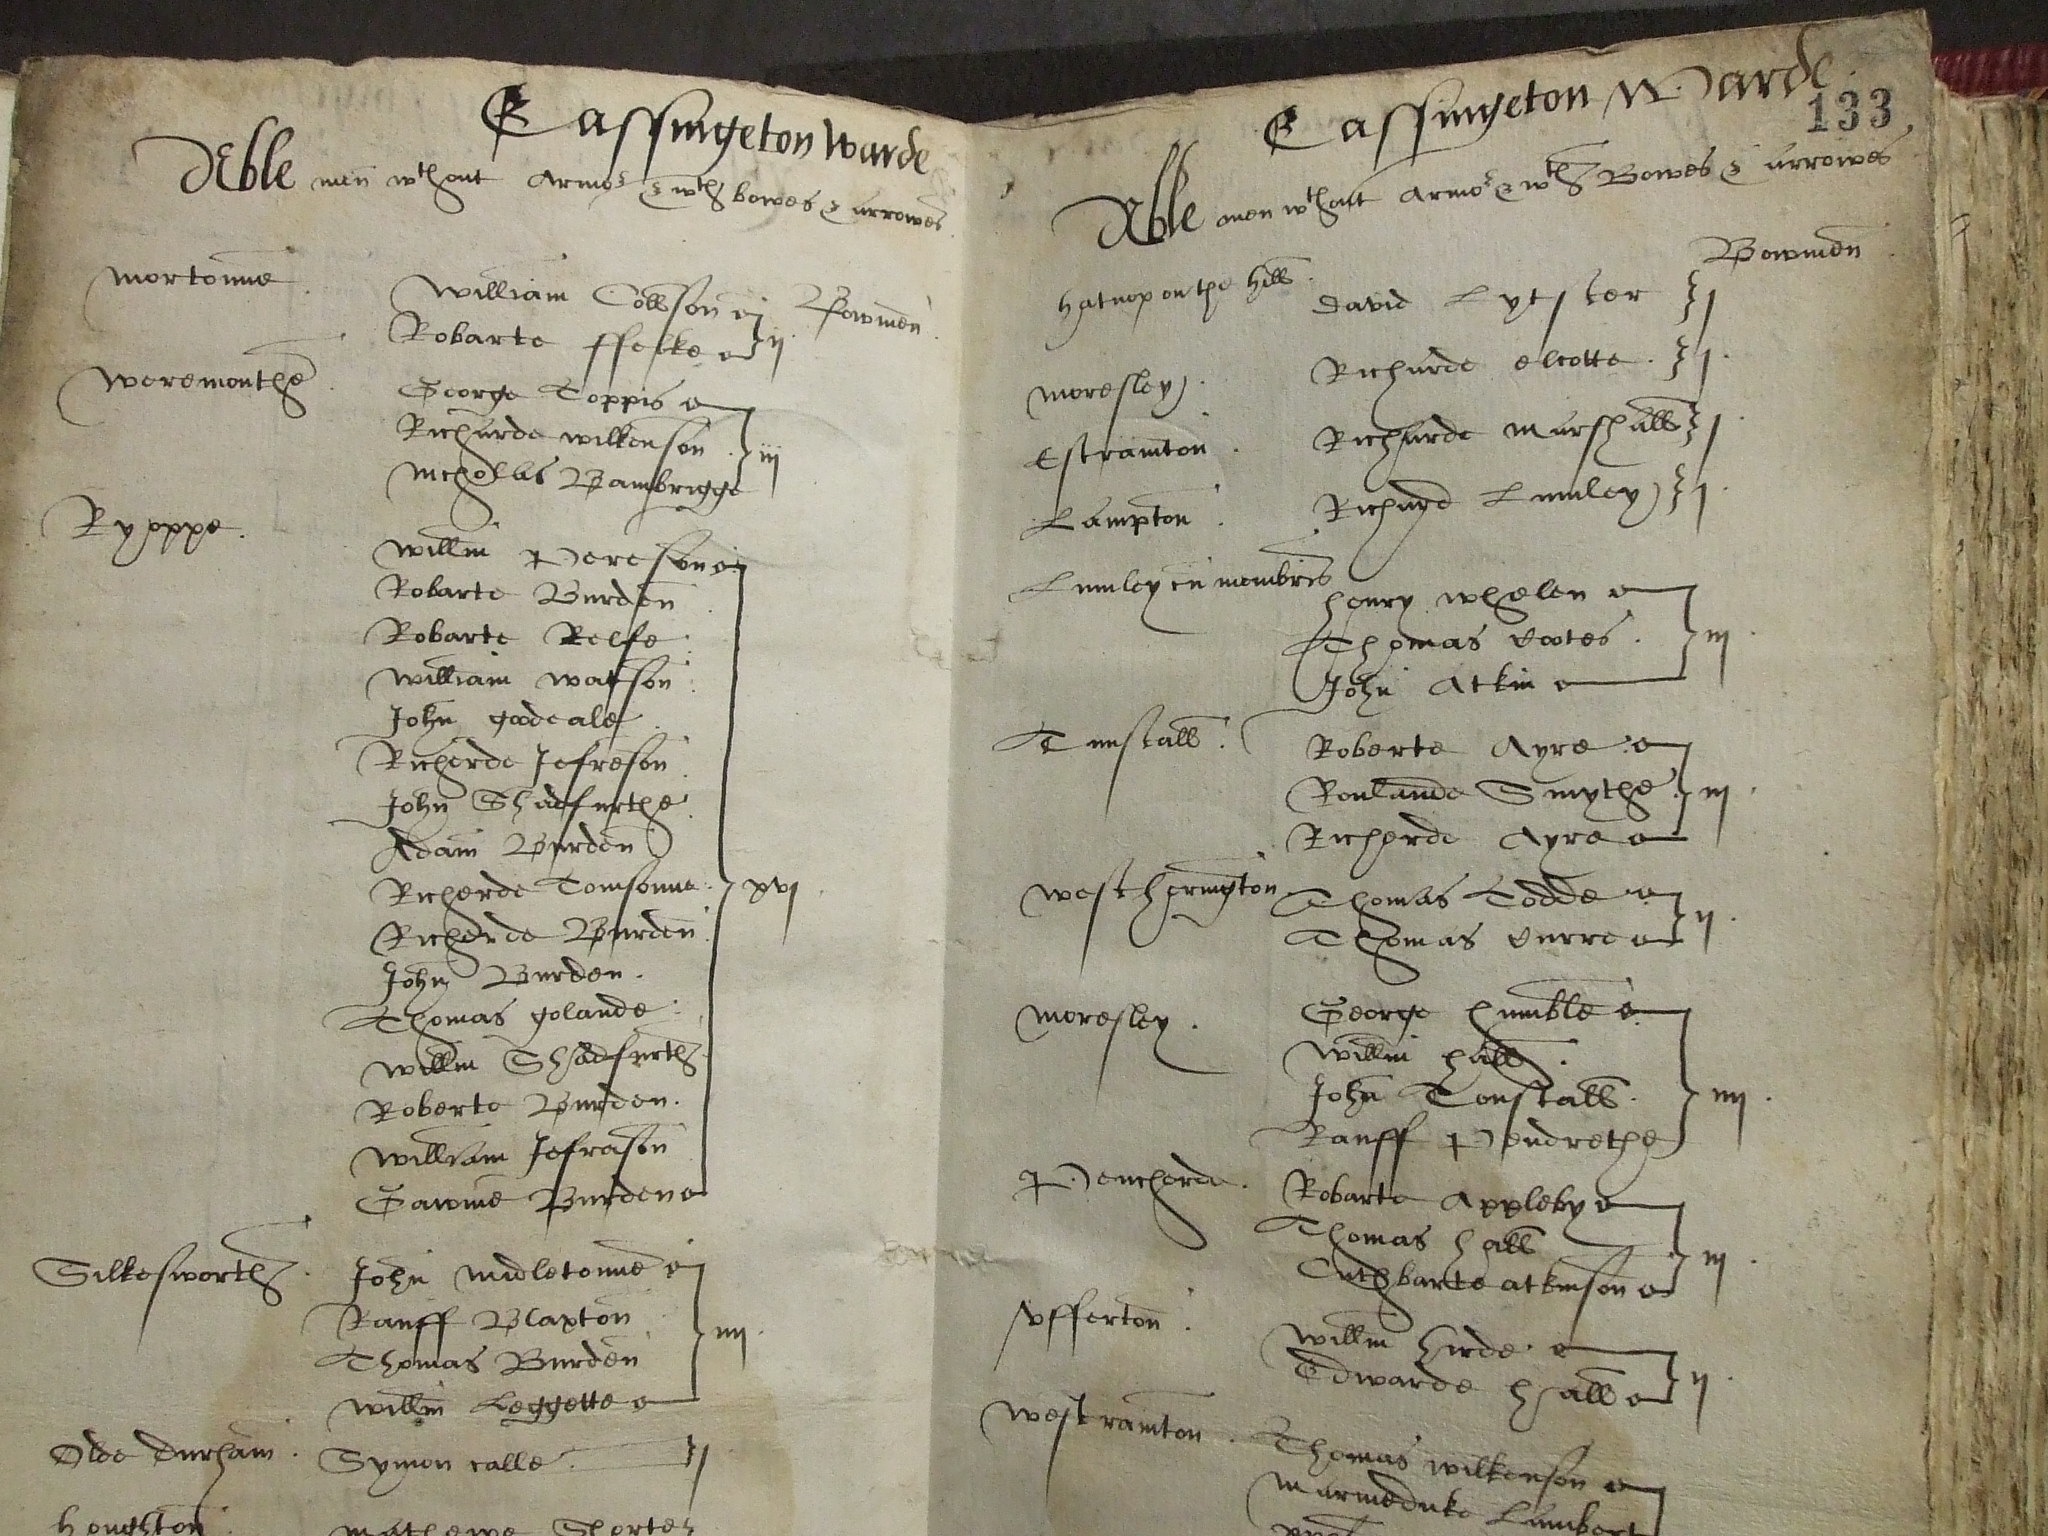 Eassingeton Warde
Able men wthout Armor & wth bowes & arrowes
Mortonne William Collson Bowmen
Robarte ffelke ij
Weremouthe George Toppis
Richarde Wilkenson iij
Nicholas Bambrigge
Ryoppe Willm Pereson
Robarte Burden
Robarte Relfe
William Watson
John goodeale
Richerde Jefreson
John Shadfurthe
Adam Burden
Richerde Tomsonne xvj
Richerde Burden
John Burden
Thomas golande
Willm Shadfurth
Roberte Burden
William Jefrason
Gawine Burden
Silkesworth John Midletonne
Rauff Blaxton
Thomas Burden iiij
Willm Leggette
Olde Durham Symon calle j
houghton Mathewe
Eassingeton Warde
133
Able men wthout Armor & wth Bowes & arrowes
Bowmen
hatnop on the hill David Lytster j
Moresley Richarde elcotte j
Estramton Richarde Marshall j
Lampton Richard Lumley j
Lumley cu membris henry Whelen
Thomas Vootes iij
John Atkin
Tunstall Roberte Ayre
Roulande Smythe iij
Richerde Ayre
West herington Thomas Todde
Thomas Vurre ij
Moresley George humble
Willm hall
John Tonstall iiij
Rauff Pendrethe
Pencherde Robarte Appleby
Thomas hall iij
Cuthbarte atkinson
Vfferton Willm hirde
Edwarde hall ij
Westramton Thomas Wilkenson
Marmeduke Lambert